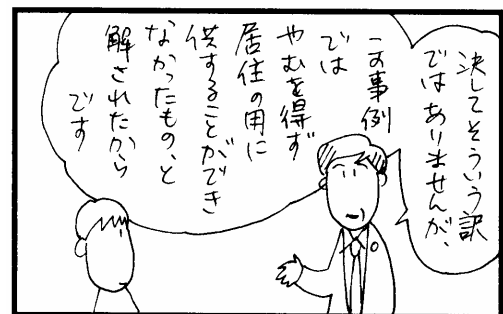 決してそういう訳
ではありませんが、
この事例
では
やむを得ず
居住の用に
供することができ
なかったもの、と
解されたから
です